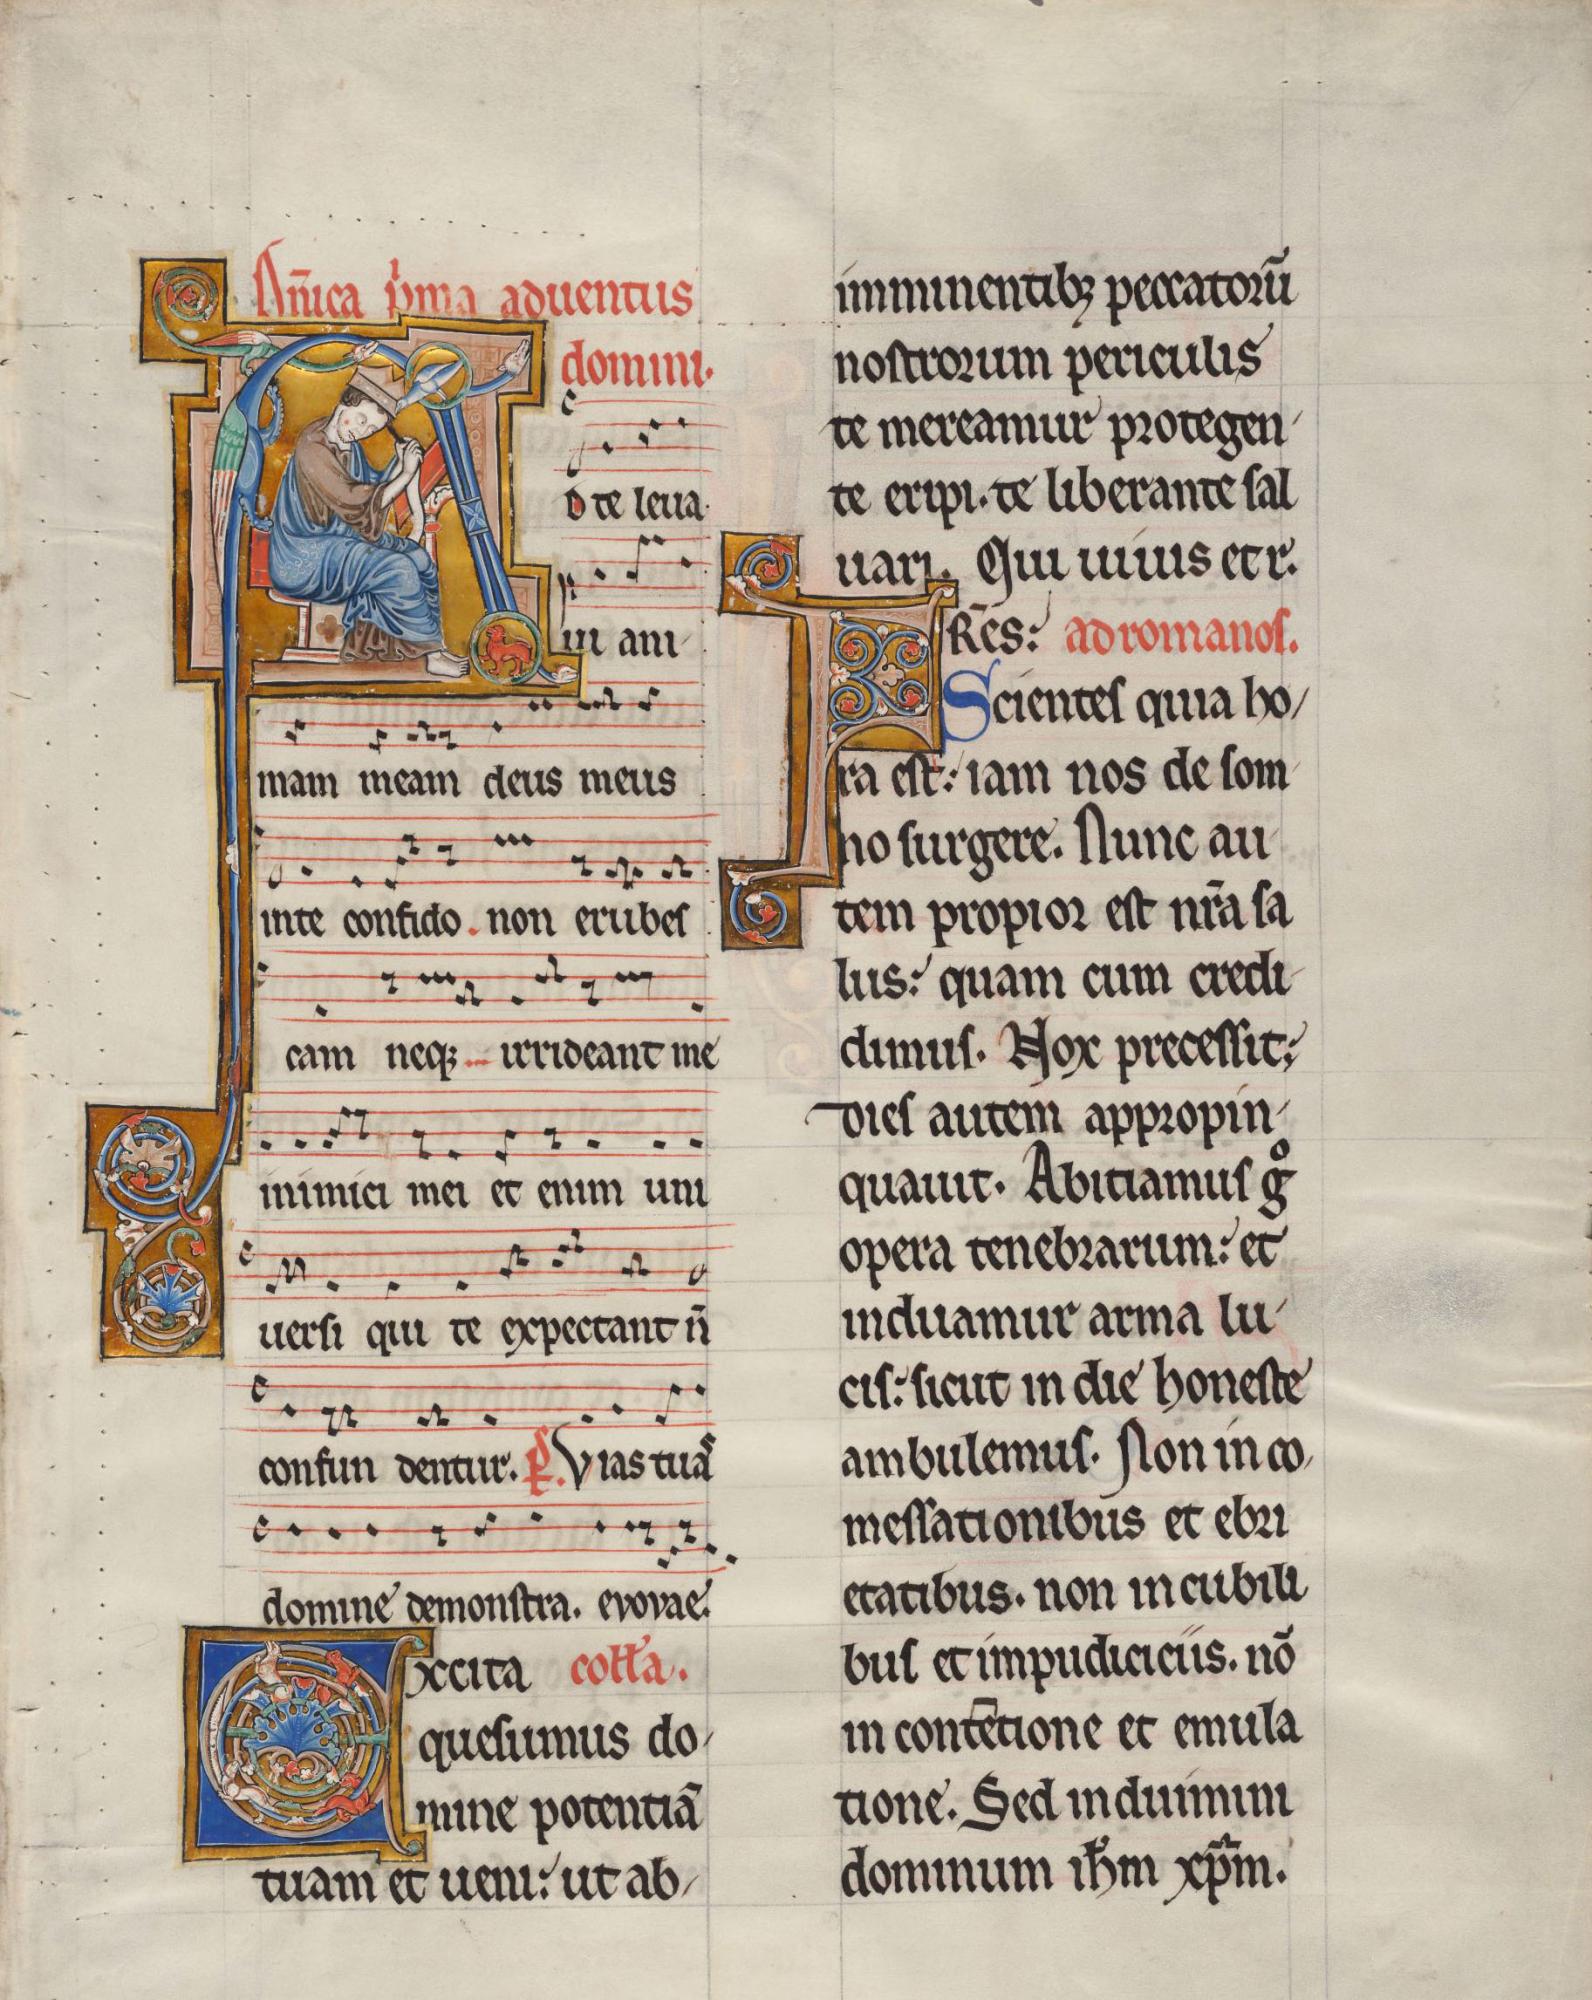 Dñica p̃ma aduentus
domini.
AD te leua
ui ani
mam meam deus meus
inte confido. non erubes
cam neqꝫ irrideant me
inimici mei et enim uni
uersi qui te expectant n̄
confun dentur. p̃. Vias tuas
domine demonstra. evovae.
Excita coll̃a.
quesumus do
mine potentiã
tuam et ueni: ut ab
imminentibꝫ peccatorũ
nostrorum periculis
te mereamur protegen
te eripi. te liberante sal
uari. Qui uiuis et r.
FR̃es: ad romanos.
Scientes quia ho
ra est: iam nos de som
no surgere. Nunc au
tem propior est nr̃a sa
lus: quam cum credi
dimus. Nox precessit;
dies autem appropin
quauit. Abiciamus gͦ
opera tenebrarum: et
induamur arma lu
cis: sicut in die honeste
ambulemus. Non in co
messationibus et ebri
etatibus. non in cubili
bus et impudiciciis. nõ
in contẽtione et emula
tione. Sed induimini
dominum ihm̃ xpm̃.